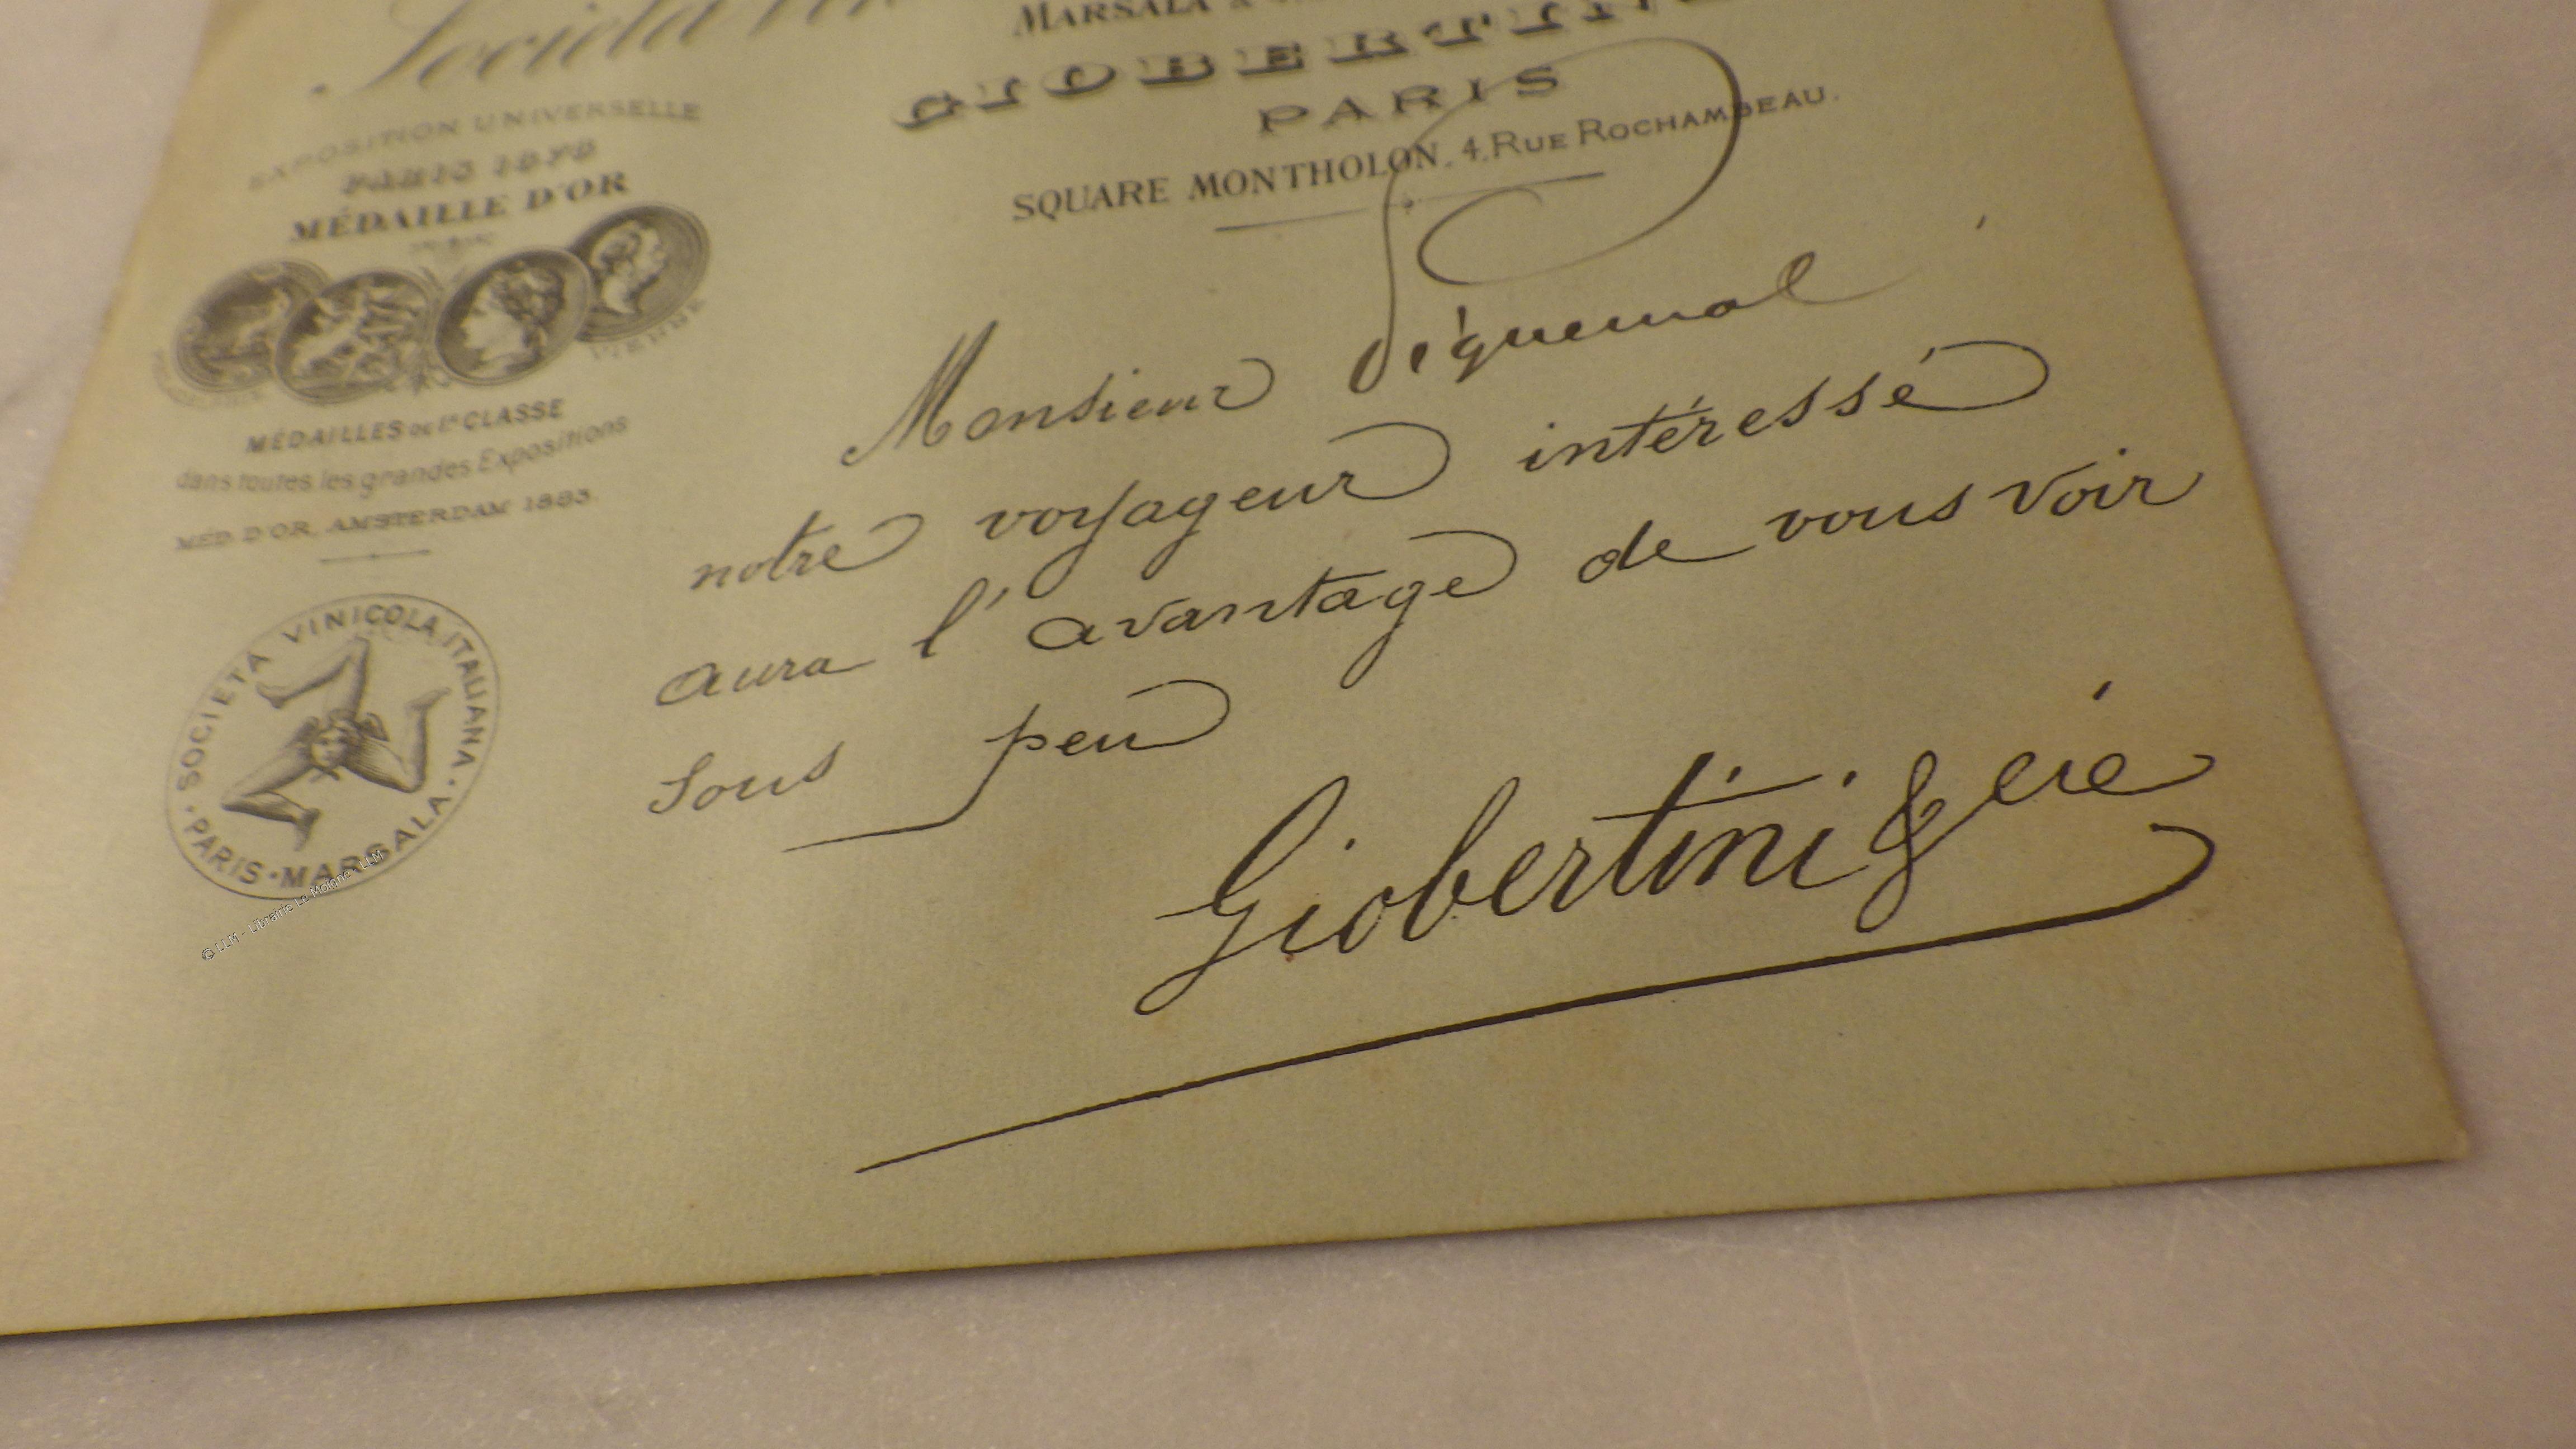 Società
MARSALA &
GIOBERTINI
PARIS
SQUARE MONTHOLON, 4, RUE ROCHAMBEAU.
EXPOSITION UNIVERSELLE
PARIS 1878
MÉDAILLE D'OR
VIENNE
MÉDAILLES DE 1re CLASSE
dans toutes les grandes Expositions
MÉD. D'OR, AMSTERDAM 1883.
SOCIETÀ VINICOLA ITALIANA
PARIS · MARSALA
Monsieur Piquemal
notre voyageur intéressé
aura l'avantage de vous voir
sous peu
Giobertini & cie
© LLM - Librairie Le Moigne - LLM